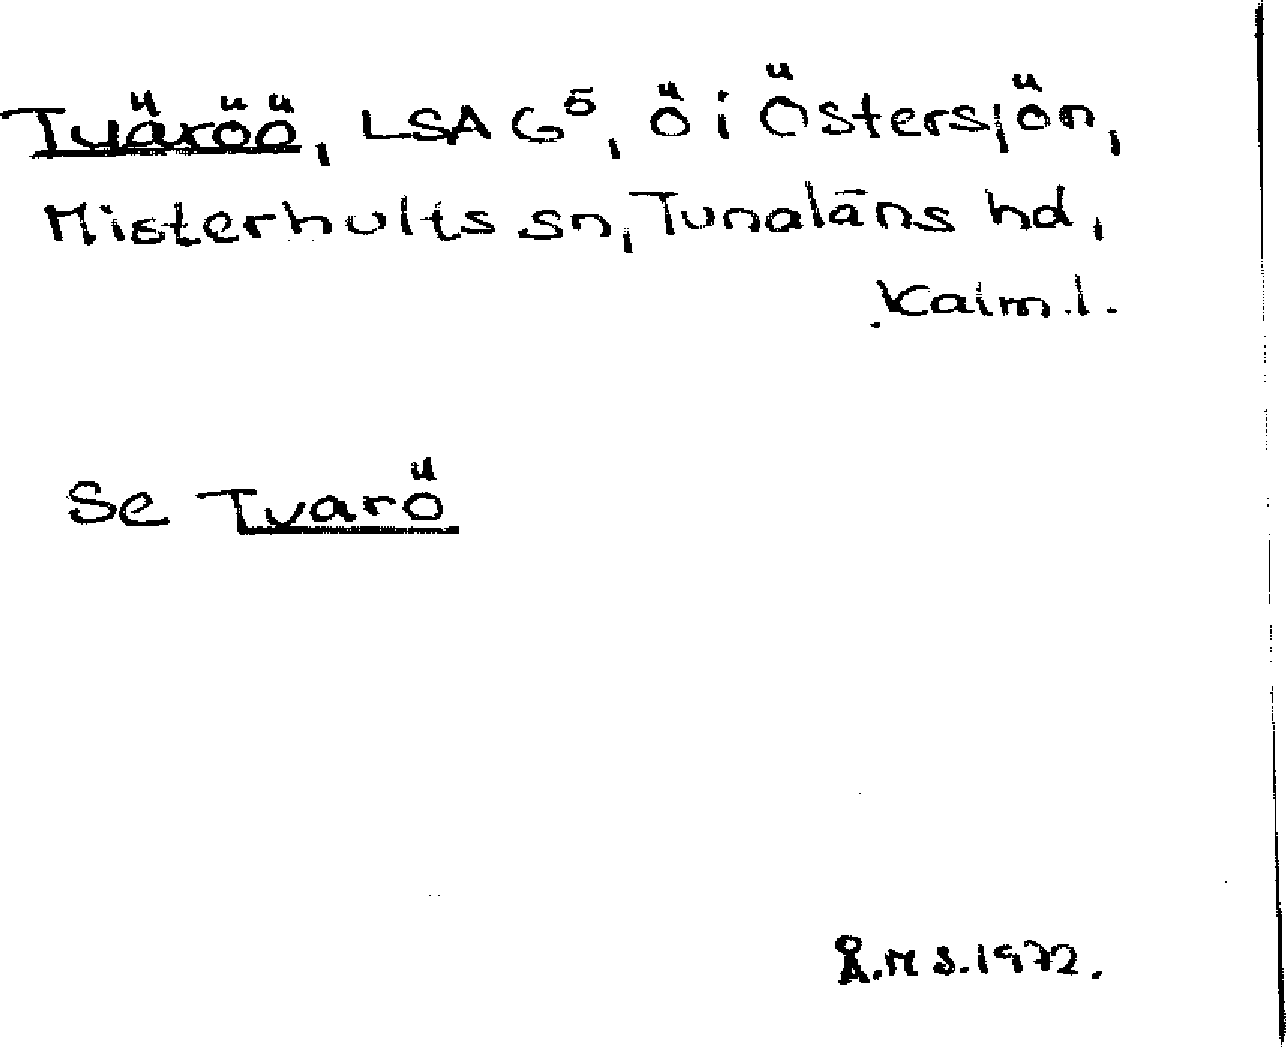 Tväröö, LSA G⁵, Ö i Östersjön,
Misterhults sn, Tunaläns hd,
Kalm. l.
Se Tvarö
Å.M S. 1972.